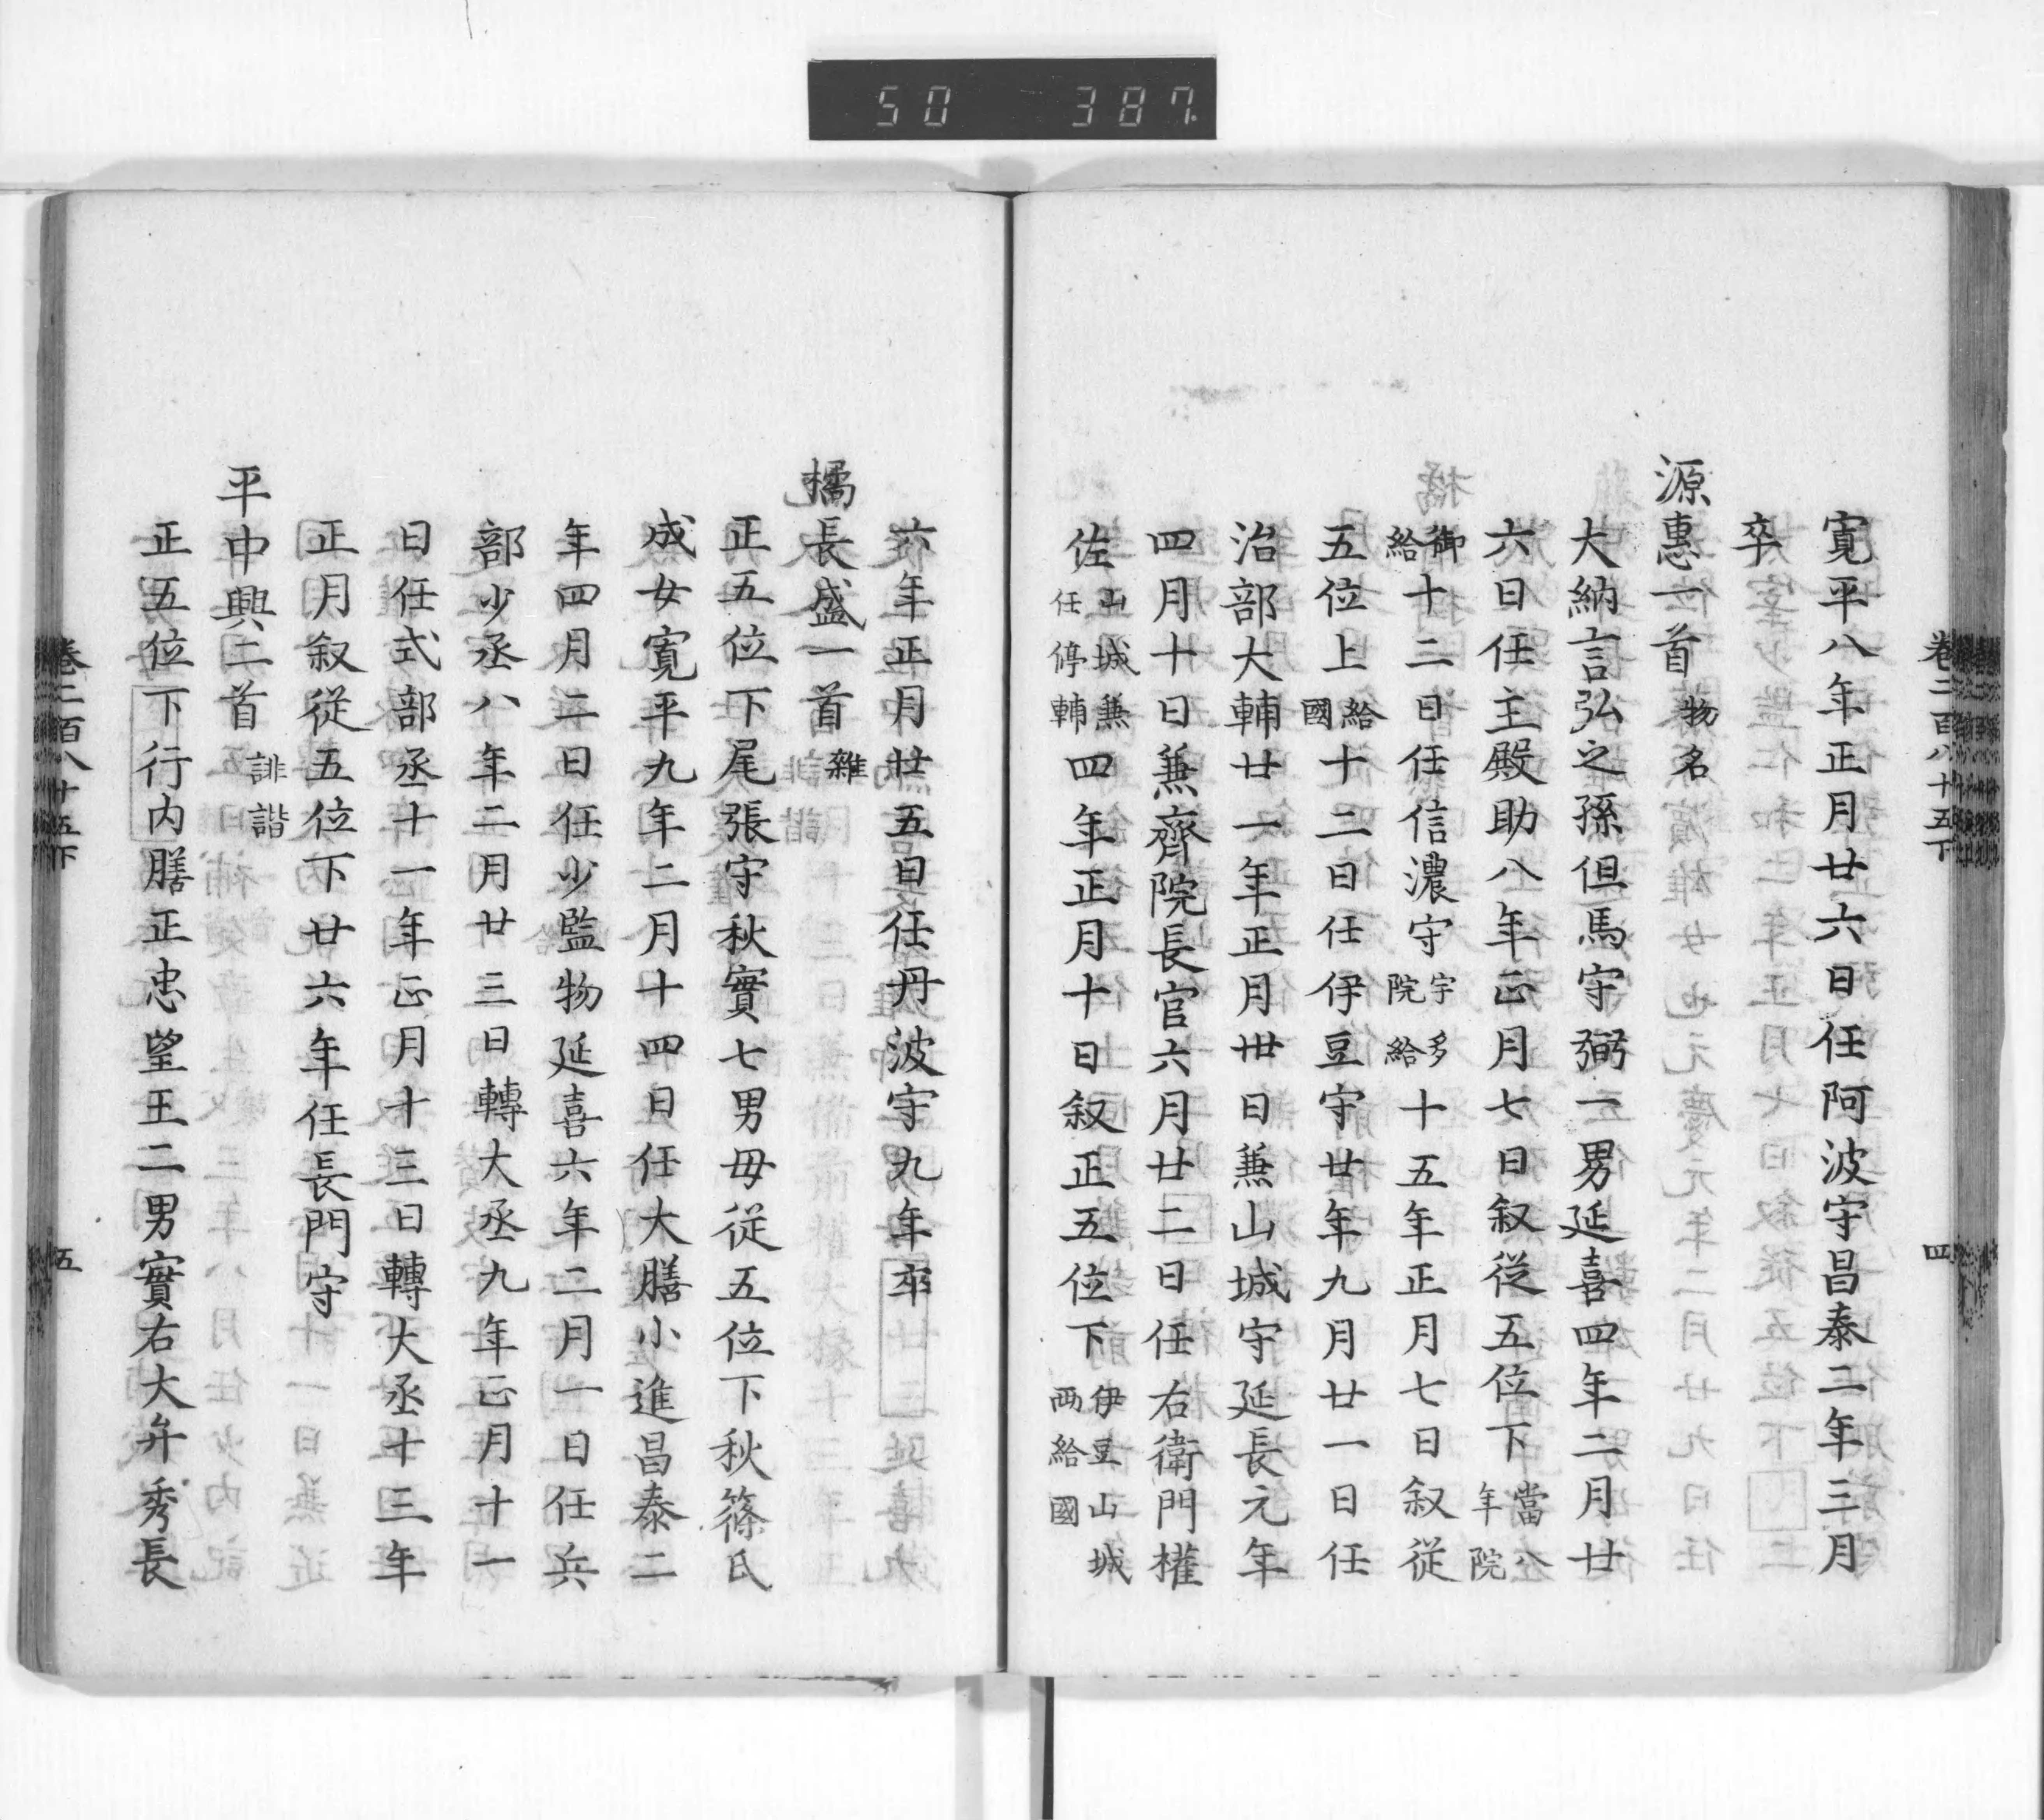 50 387
卷二百八十五下 四
寛平八年正月廿六日任阿波守昌泰二年三月
卒
源惠一首 物名
大納言弘之孫但馬守弼一男延喜四年二月廿
六日任主殿助八年正月七日叙從五位下 當年 公院
御給十二日任信濃守 宇多院給 十五年正月七日叙從
五位上 給國 十二日任伊豆守廿年九月廿一日任
治部大輔廿一年正月卅日兼山城守延長元年
四月十日兼齊院長官六月廿二日任右衛門權
佐 山城兼任停輔 四年正月十日叙正五位下 伊豆山城両給國
六年正月廿五日任丹波守九年卒
橘長盛一首 雜
正五位下尾張守秋實七男母從五位下秋篠氏
成女寛平九年二月十四日任大膳小進昌泰二
年四月二日任少監物延喜六年二月一日任兵
部少丞八年二月廿三日轉大丞九年正月十一
日任式部丞十一年正月十三日轉大丞十三年
正月叙從五位下廿六年任長門守
平中興二首 誹諧
正五位下行内膳正忠望王二男實右大弁秀長
卷二百八十五下 五